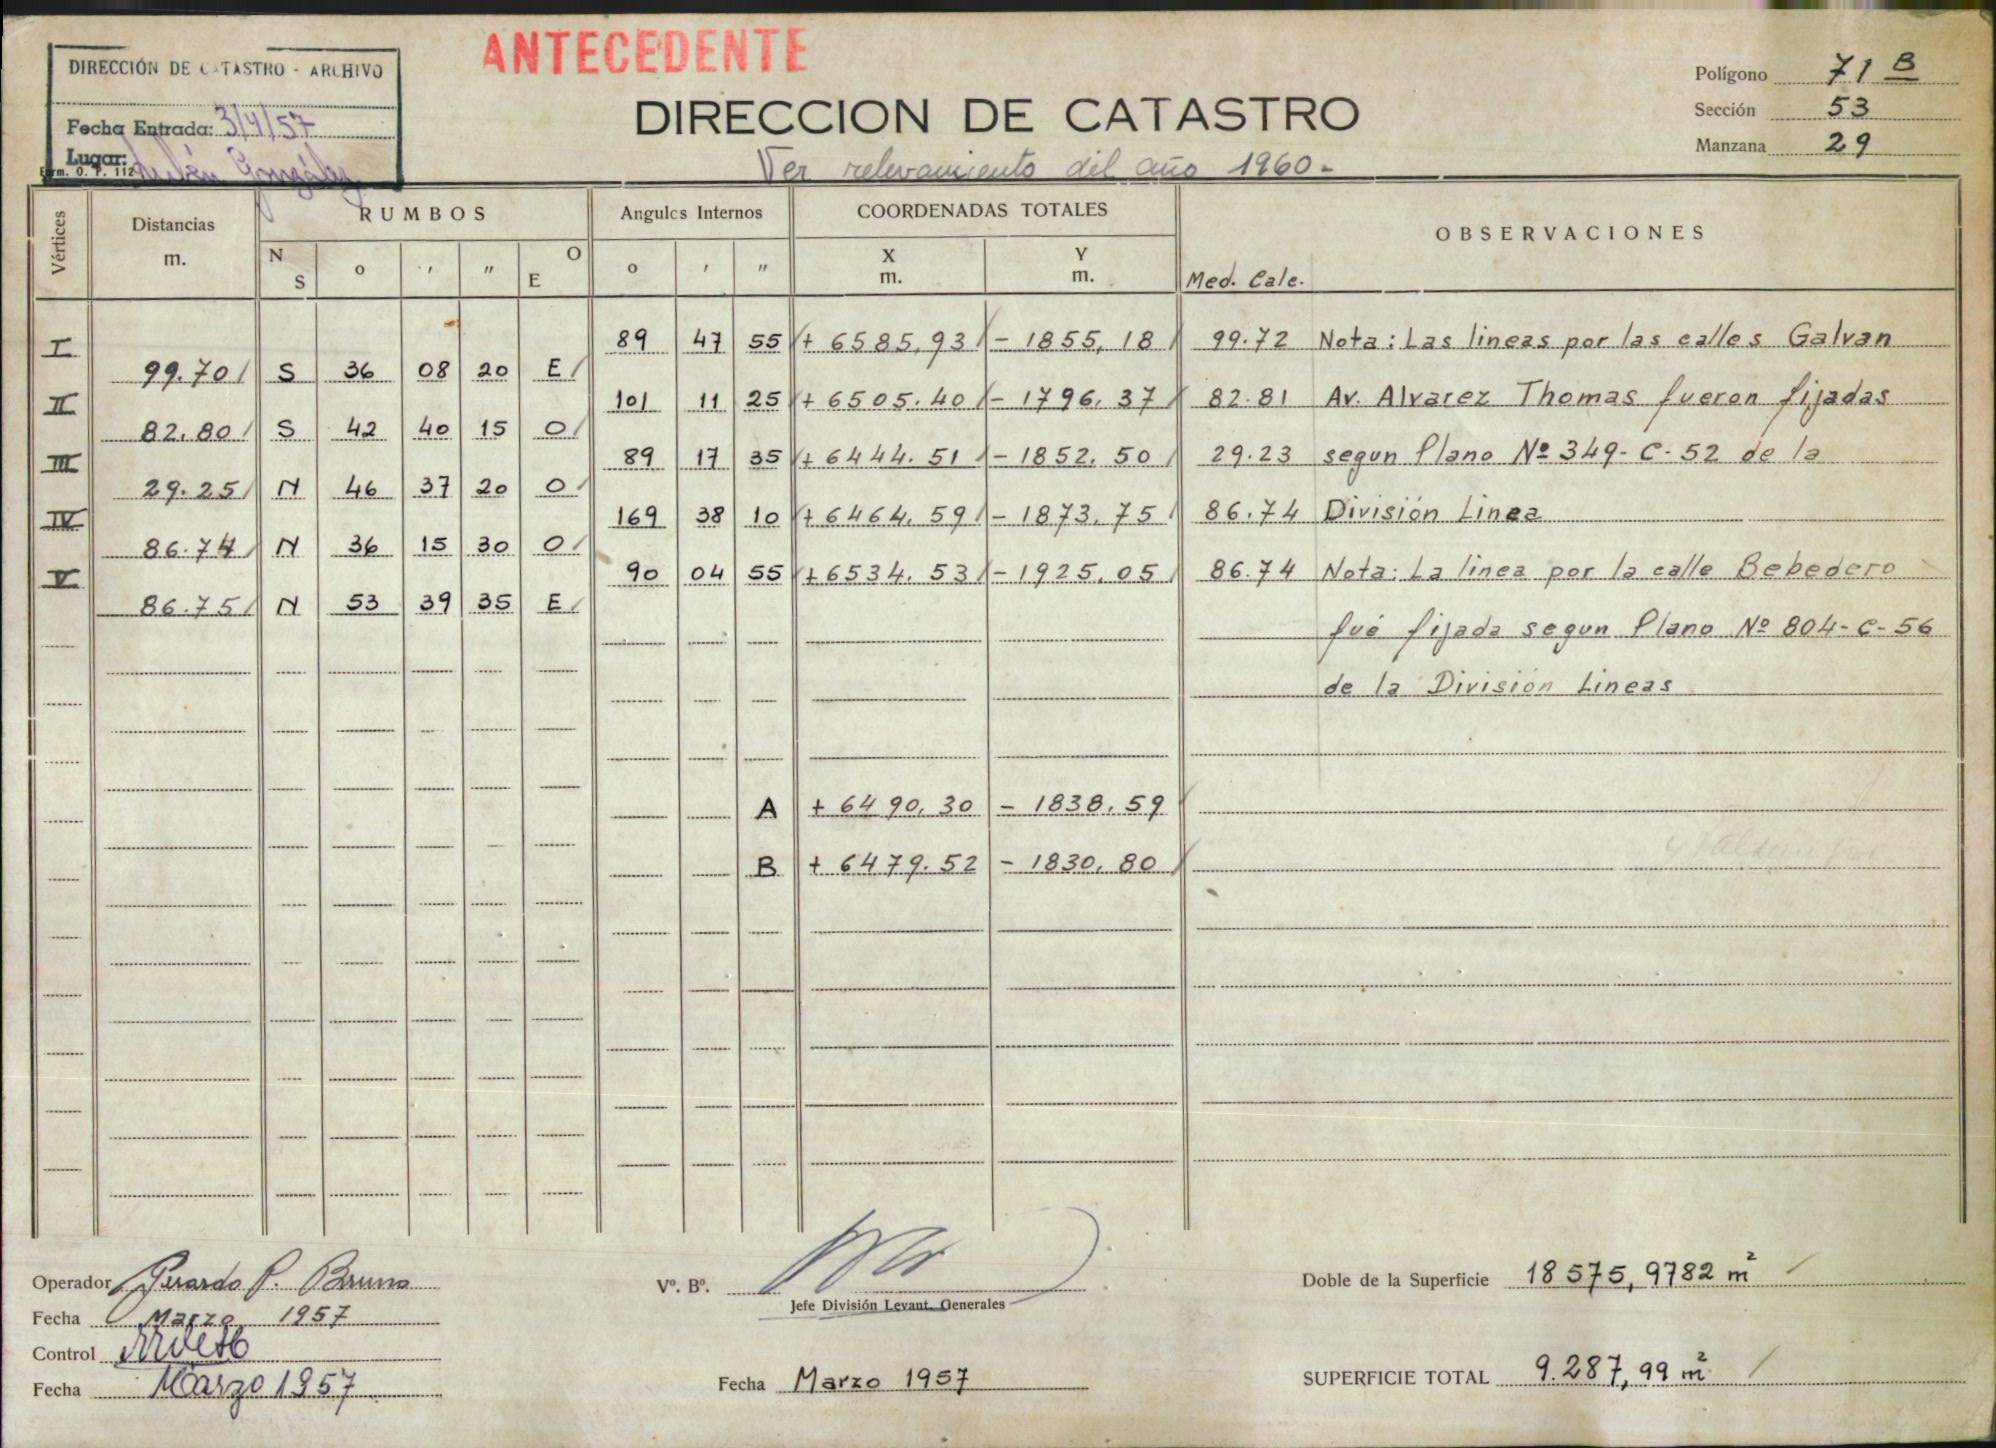 ANTECEDENTE
DIRECCIÓN DE CATASTRO - ARCHIVO
Fecha Entrada: 3/4/57
Lugar: Rubén González
Form. O. P. 112
DIRECCION DE CATASTRO
Ver relevamiento del año 1960.-
Polígono 71 B
Sección 53
Manzana 29
Vértices Distancias m. RUMBOS Angulos Internos COORDENADAS TOTALES OBSERVACIONES
N S o ' " O E o ' " X m. Y m. Med. Calc.
I 89 47 55 + 6585,93 - 1855,18 99.72 Nota: Las lineas por las calles Galvan
99.70 S 36 08 20 E
II 101 11 25 + 6505.40 - 1796.37 82.81 Av. Alvarez Thomas fueron fijadas
82.80 S 42 40 15 O
III 89 17 35 + 6444.51 - 1852.50 29.23 segun Plano Nº 349-C-52 de la
29.25 N 46 37 20 O
IV 169 38 10 + 6464.59 - 1873.75 86.74 División Linea
86.74 N 36 15 30 O
V 90 04 55 + 6534.53 - 1925.05 86.74 Nota: La linea por la calle Bebedero
86.75 N 53 39 35 E
fué fijada segun Plano Nº 804-C-56
de la División Lineas
A + 6490.30 - 1838.59
B + 6479.52 - 1830.80
Operador Gerardo P. Bruno
Fecha Marzo 1957
Control
Fecha Marzo 1957
Vº. Bº.
Jefe División Levant. Generales
Fecha Marzo 1957
Doble de la Superficie 18575,9782 m²
SUPERFICIE TOTAL 9.287,99 m²